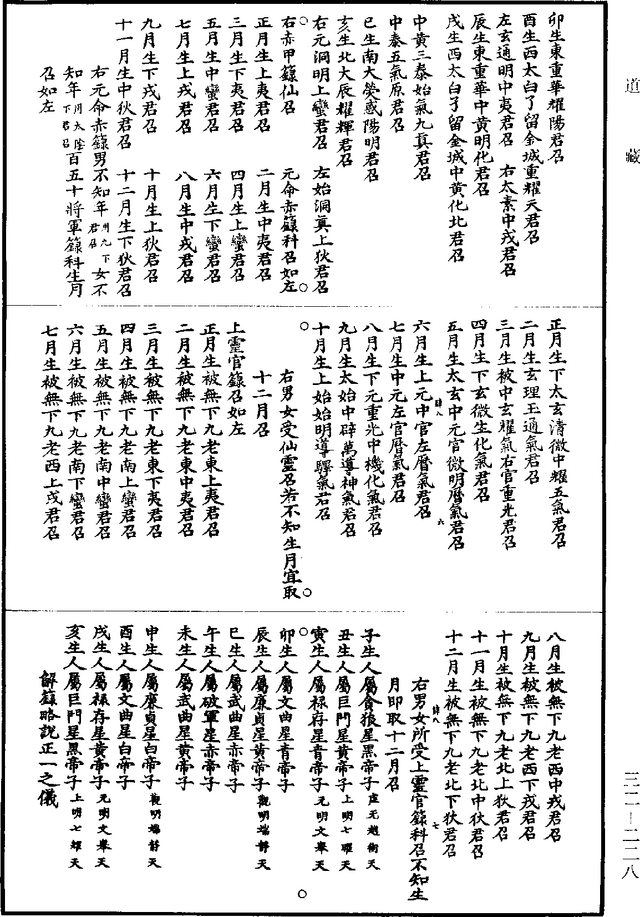 道藏
卯生東重華耀陽君召
酉生西太白了留金城重耀天君召
左玄通明中夷君召　右太素中戎君召
辰生東重華中黃明化君召
戌生西太白了留金城中黃化北君召
中黃三泰始氣九真君召
中泰五氣原君召
巳生南大熒惑陽明君召
亥生北大辰耀輝君召
右元洞明上蠻君召　左始洞真上狄君召
右赤甲籙仙召　元命赤籙科召如左
正月生上夷君召　二月生中夷君召
三月生下夷君召　四月生上蠻君召
五月生中蠻君召　六月生下蠻君召
七月生上戎君召　八月生中戎君召
九月生下戎君召　十月生上狄君召
十一月生中狄君召　十二月生下狄君召
右元命赤籙男不知年用九下君召女不
知年用太陰下君召百五十將軍籙科生月
召如左
正月生下太玄清微中耀五氣君召
二月生玄理王通氣君召
三月生被中玄耀氣右官重光君召
四月生下玄微生化氣君召
五月生太玄中元官微明曆氣君召
六月生上元中官左曆氣君召
七月生中元左官曆氣君召
八月生下元重光中機化氣君召
九月生太始中辟萬導神氣君召
十月生上始始明導驛氣君召
右男女受仙靈召若不知生月宜取
十二月召
上靈官籙召如左
正月生被無下九老東上夷君召
二月生被無下九老東中夷君召
三月生被無下九老東下夷君召
四月生被無下九老南上蠻君召
五月生被無下九老南中蠻君召
六月生被無下九老南下蠻君召
七月生被無下九老西上戎君召
八月生被無下九老西中戎君召
九月生被無下九老西下戎君召
十月生被無下九老北上狄君召
十一月生被無下九老北中狄君召
十二月生被無下九老北下狄君召
右男女所受上靈官籙科召不知生
月即取十二月召
子生人屬貪狼星黑帝子虛元越衡天
丑生人屬巨門星黃帝子上明七曜天
寅生人屬祿存星青帝子元明文舉天
卯生人屬文曲星青帝子
辰生人屬廉貞星黃帝子觀明端靜天
巳生人屬武曲星赤帝子
午生人屬破軍星赤帝子
未生人屬武曲星黃帝子
申生人屬廉貞星白帝子觀明端靜天
酉生人屬文曲星白帝子
戌生人屬祿存星黃帝子元明文舉天
亥生人屬巨門星黑帝子上明七耀天
解籙略說正一之儀
三二—二二八